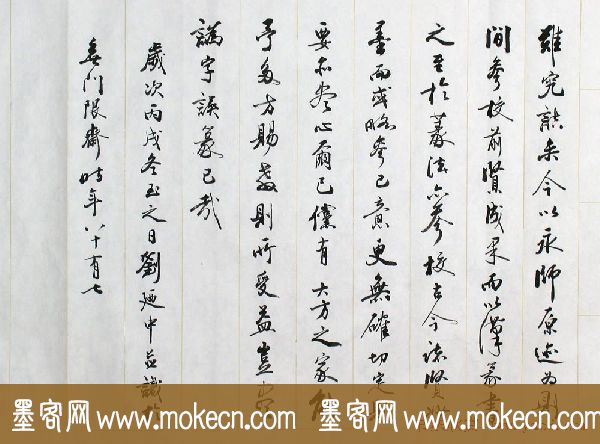 雖究詰未今以永師原迹為則
間參校前賢成果而以漢篆書
之至於篆法亦參校古今諸賢
墨而或略參己意更無確切定
要不盡心爾已儻有大方之家能
予多方賜教則所受益豈
譌字誤篆已哉
歲次丙戌冬至之日劉廼中並識於
無門限齋時年八十有七
墨客网 www.mokecn.com 墨客网 www.mokecn.com